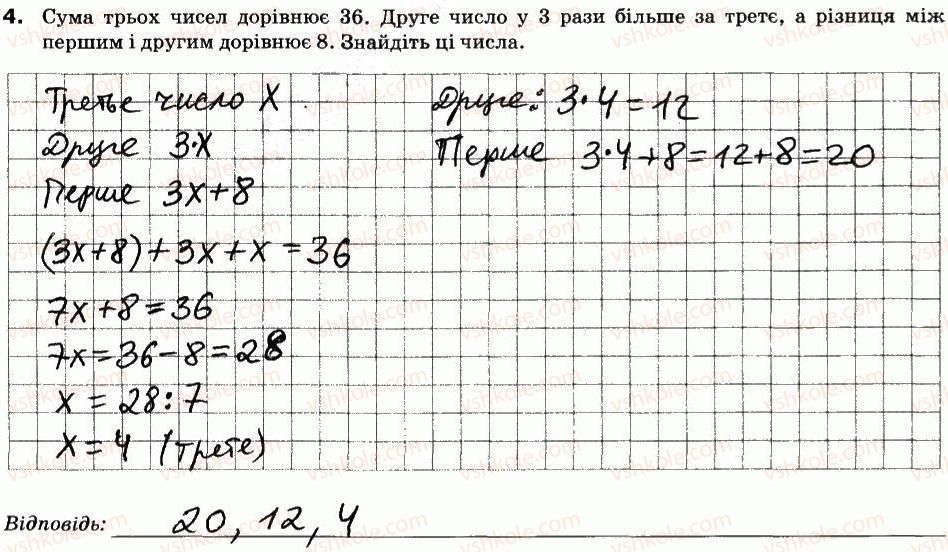 4. Сума трьох чисел дорівнює 36. Друге число у 3 рази більше за третє, а різниця між
першим і другим дорівнює 8. Знайдіть ці числа.
Третье число X
Друге 3·X
Перше 3X+8
(3X+8)+3X+X=36
7X+8=36
7X=36-8=28
X=28:7
X=4 (третє)
Друге: 3·4=12
Перше 3·4+8=12+8=20
Відповідь: 20, 12, 4
vshkole.com